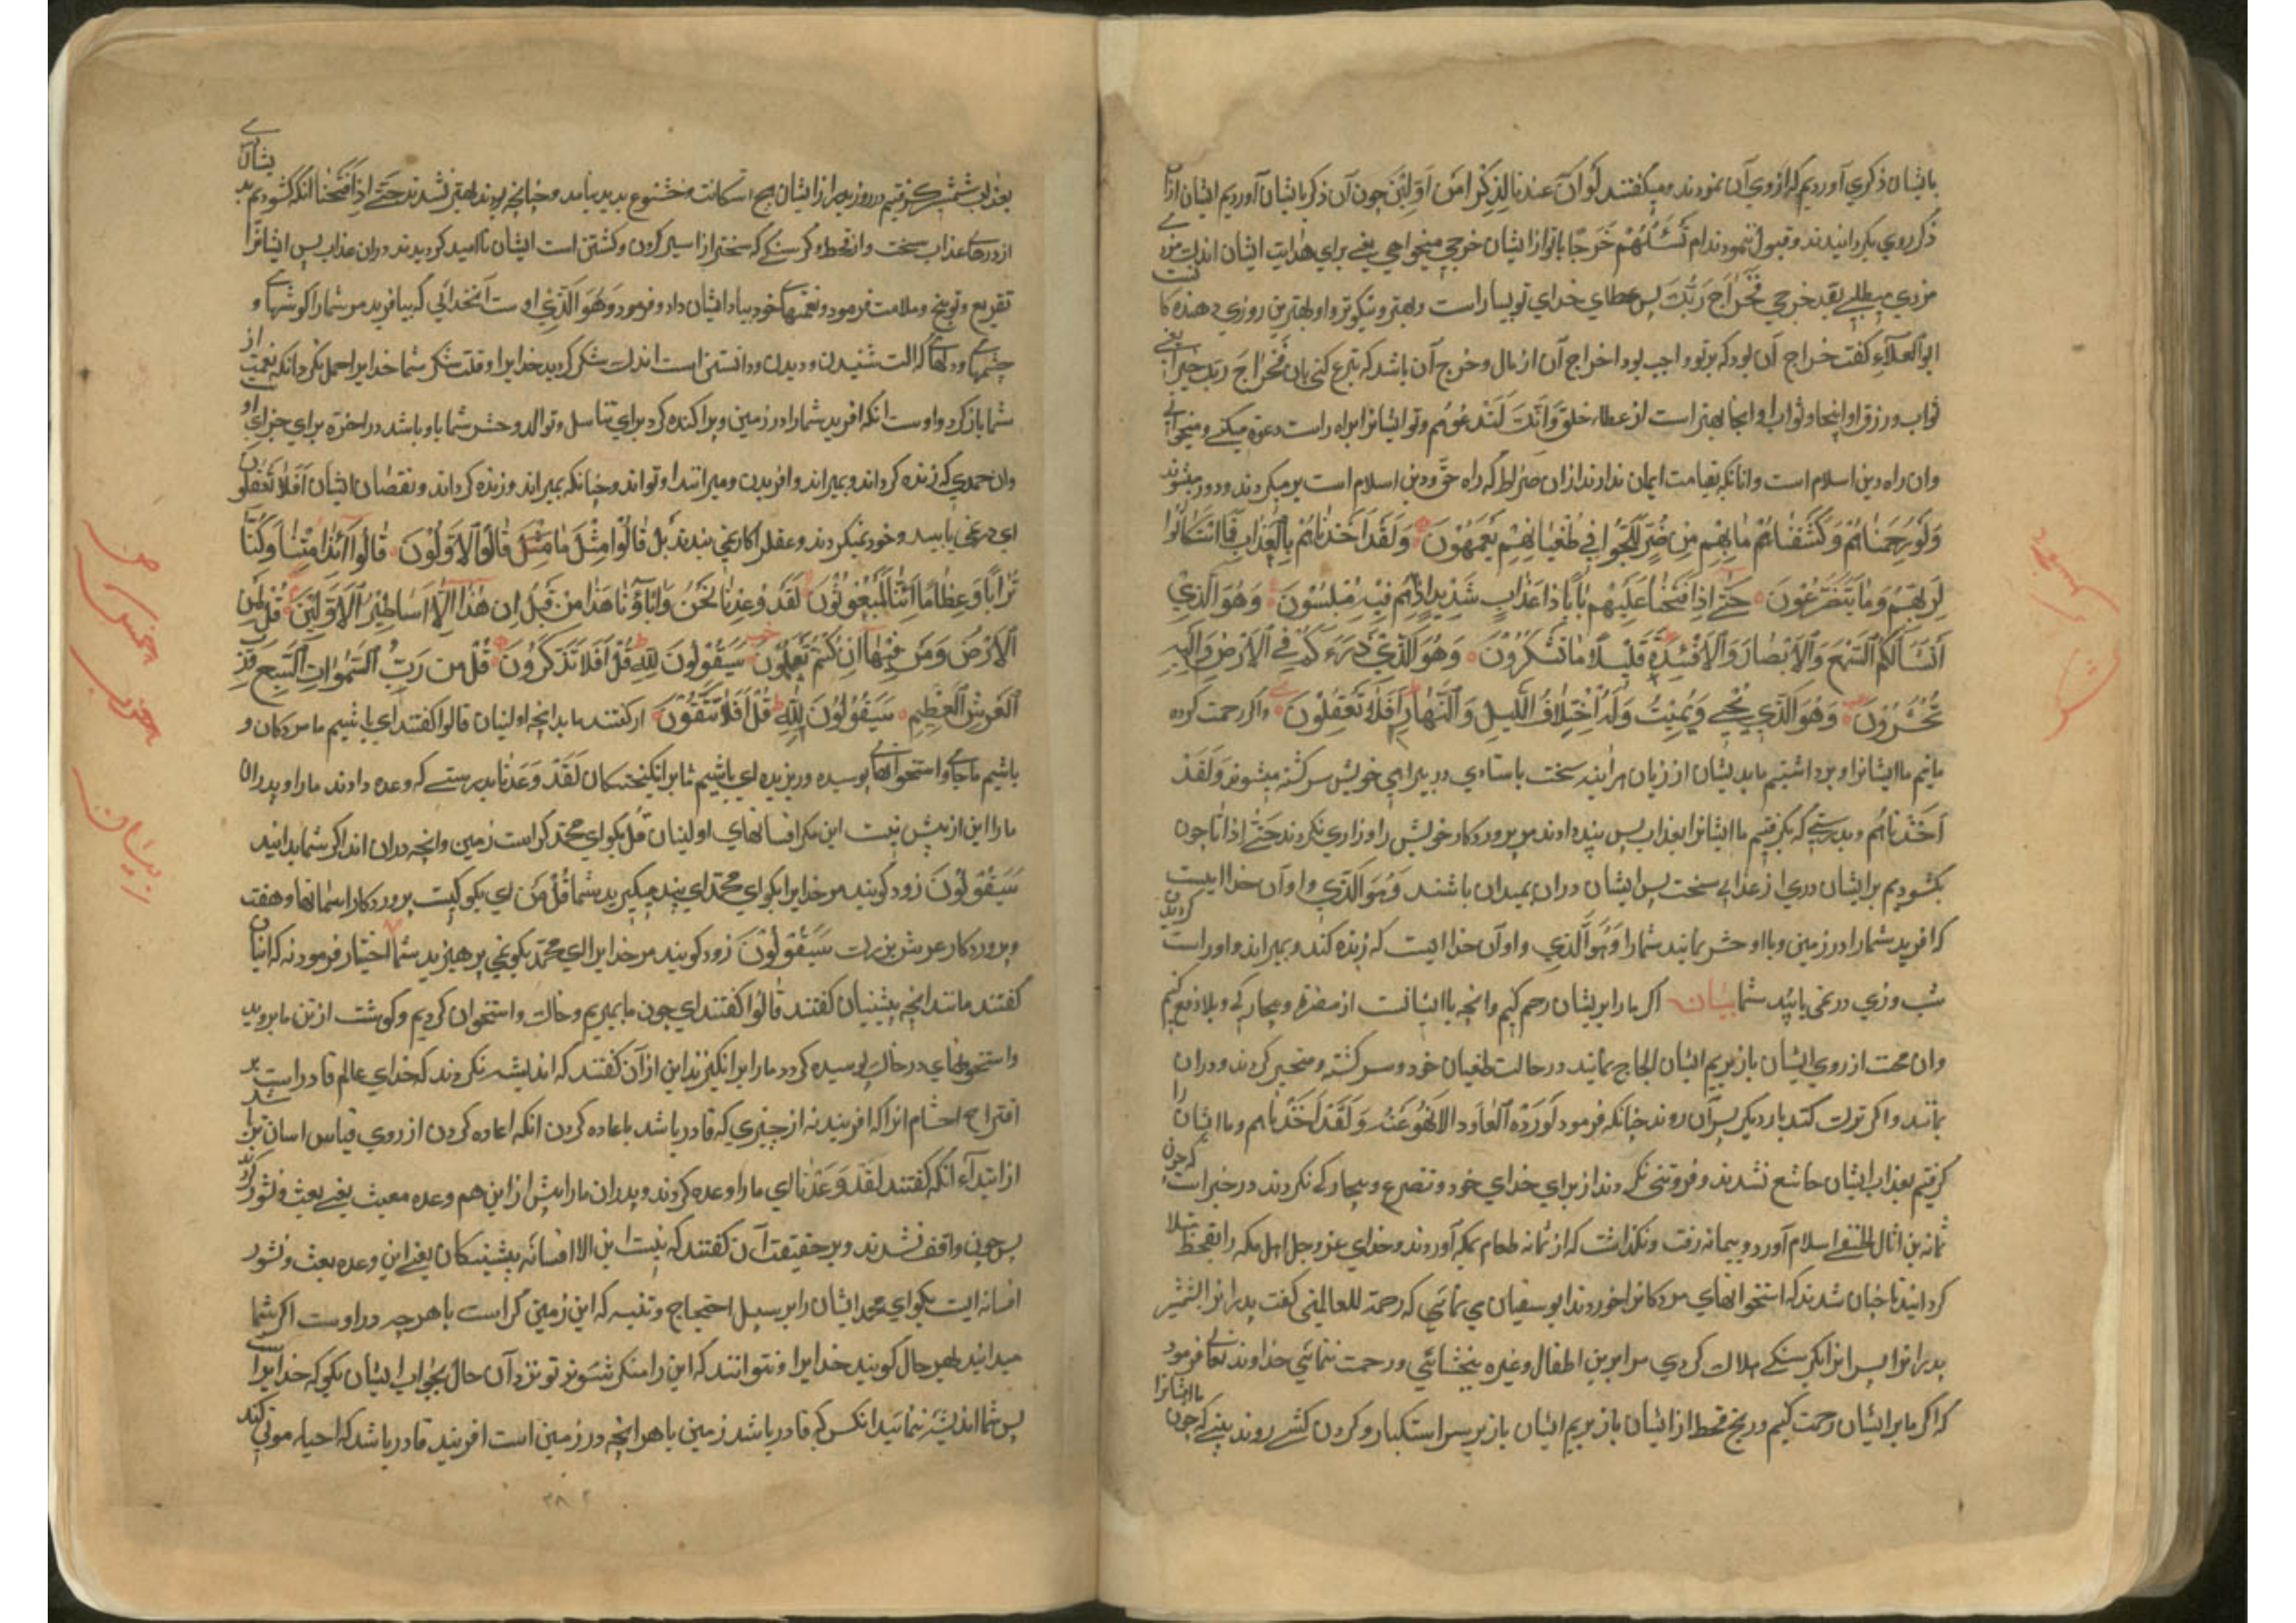 بایشان ذکری آوردیم که ازوی آن نمودند ومیکفتند لَوْ اَنَّ عِندَنا ذِکْرًا مِنَ اَوَّلِینَ چون آن ذکر بایشان آوردیم ایشان ازان
ذکر روی بکردانیدند وقبول ننمودند ام تَسْئَلُهُمْ خَرْجًا یا تو از ایشان خرجی میخواهی یعنی برای هدایت ایشان اندک مزد
مزدی میطلبی بقد خرجی فَخَرَاجُ رَبِّکَ پس عطای خدای تو بسیار است وبهتر ونیکوتر واو بهترین روزی دهنده کا
ابو العلاء کفت خراج آن بود که برتو واجب بود اخراج آن از مال وخرج آن باشد که تبرع کنی بان فَخَرَاجُ رَبِّکَ خیر یعنی
ثواب ورزق او اینجا وثواب او انجا بهتر است از عطاء خلق وَاِنَّکَ لَتَدْعُوهُم وتو ایشانرا براه راست دعوة میکنی ومیخوانی
وان راه دین اسلام است وانانکه بقیامت ایمان ندارند ازان صراط که راه حق ودین اسلام است برمیکردند ودور میشوند
وَلَوْ رَحِمْنَاهُمْ وَکَشَفْنَا مَابِهِمْ مِنْ ضُرٍّ لَلَجُّوا فِی طُغْیَانِهِمْ یَعْمَهُونَ وَلَقَدْ اَخَذْنَاهُمْ بِالْعَذَابِ فَمَا اسْتَکَانُوا
لِرَبِّهِمْ وَمَا یَتَضَرَّعُونَ حَتَّی اِذَا فَتَحْنَا عَلَیْهِمْ بَابًا ذَا عَذَابٍ شَدِیدٍ اِذَاهُمْ فِیهِ مُبْلِسُونَ وَهُوَ الَّذِی
اَنْشَاَ لَکُمُ السَّمْعَ وَالْاَبْصَارَ وَالْاَفْئِدَةَ قَلِیلًا مَا تَشْکُرُونَ وَهُوَ الَّذِی ذَرَءَکُمْ فِی الْاَرْضِ وَاِلَیْهِ
تُحْشَرُونَ وَهُوَ الَّذِی یُحْیِی وَیُمِیتُ وَلَهُ اخْتِلَافُ اللَّیْلِ وَالنَّهَارِ اَفَلَا تَعْقِلُونَ واکر رحمت کرده
مانیم ما ایشانرا وبرداشتیم ما بدیشان از زیان هراینه سخت باستادی در بیراهی خویش سرکشته میشوند وَلَقَدْ
اَخَذْنَاهُم وبدرستی که بکرفتیم ما ایشانرا بعذاب پس نپیه اوند مر پروردکار خویش را وزاری نکردند حَتَّی اِذَا تا چون
بکشودیم بر ایشان دری از عذابی سخت پس ایشان دران نمیدان باشند وَهُوَ الَّذِی واو آن خدا اییست
که افرید شمارا در زمین وبااو حشر نمایند شمارا وَهُوَ الَّذِی واو آن خدا اییست که زنده کند وبمیراند واوراست
شب وروزی درنمی یابید شما بیان اکر ما بر ایشان رحم کنیم وانچه با ایشانست از مضرة وبیچارکی وبلا دفع کنیم
وان محنت از روی ایشان باز بریم ایشان لجاج نمایند در حالت طغیان خود وسرکشته ومتحیر کردند ودران
بمانند واکر توبت کنند بار دیکر بسر آن روند چنانکه فرمود لَوْ رُدُّوا لَعَادُوا لِمَا نُهُوا عَنْهُ وَلَقَدْ اَخَذْنَاهُم وما ایشان را
کرفتیم بعذاب ایشان خاشع نشدند وفروتنی نکردند از برای خدای خود وتضرع وبیچارکی نکردند در خبر است که چون
ثمامه بن اثال الحنفی اسلام آورد وبیمامه رفت ونکذاشت که از یمامه طعام بمکه آوردند وخدای عز وجل اهل مکه را بقحط مبتلا
کردانید تا چنان شدند که استخوانهای مردکانرا خوردند ابو سفیان می نمائی که رحمة للعالمینی کفت پدرانرا بشمشیر
پدرانرا وپسرانرا بکرسنکی هلاک کردی مر ابر بن اطفال وغیره ببخشائی ورحمت ننمائی خداوند تعالی فرمود
که اکر ما بر ایشان رحمت کنیم ورنج قحط از ایشان باز بریم ایشان باز بر سر استکبار وکردن کشی روند یعنی که چون ما ایشانرا
بعذاب شمشیر کرفتیم در روز بدر از ایشان هیچ استکانت وخشوع بدید نیامد وچنانچه بودند بهتر نشدند حَتَّی اِذَا فَتَحْنَا انکه کشودیم بر یشان
از درهای عذاب سخت وازقحط وکرسنکی که سختر از اسیر کردن وکشتن است ایشان ناامید کردیدند دران عذاب پس ایشانرا
تقریع وتوبیخ وملامت فرمود ونعمتهای خود بیاد ایشان داد وفرمود وَهُوَ الَّذِی او ست آنخدائی که بیافرید مر شمارا کوشها و
چشمها ودلها که الت شنیدن ودیدن ودانستن است اندک شکر کردید خدایرا وقلت شکر شما خدایرا حمل نکرد انکه نعمت از
شما باز کرد واوست انکه افرید شمارا در زمین وپراکنده کرد برای تناسل وتوالد وحشر شما باو باشد در اخرة برای جزای او
وان خدی که زنده کرداند وبمیراند وافریدن ومیرانند او تواند وچنانکه بمیراند وزنده کرداند ونقصان ایشان اَفَلَا تَعْقِلُونَ
ای درنمی یابید وخود نمیکردند وعقل را کار نمی بندند بَلْ قَالُوا مِثْلَ مَا قَالَ الْاَوَّلُونَ قَالُوا ءَاِذَا مِتْنَا وَکُنَّا
تُرَابًا وَعِظَامًا ءَاِنَّا لَمَبْعُوثُونَ لَقَدْ وُعِدْنَا نَحْنُ وَاٰبَاؤُنَا هَذَا مِنْ قَبْلُ اِنْ هَذَا اِلَّا اَسَاطِیرُ الْاَوَّلِینَ قُلْ لِمَنِ
الْاَرْضُ وَمَنْ فِیهَا اِنْ کُنْتُمْ تَعْلَمُونَ سَیَقُولُونَ لِلّٰهِ قُلْ اَفَلَا تَذَکَّرُونَ قُلْ مَنْ رَبُّ السَّمَوَاتِ السَّبْعِ وَرَبُّ
الْعَرْشِ الْعَظِیمِ سَیَقُولُونَ لِلّٰهِ قُلْ اَفَلَا تَتَّقُونَ ارکفتند ما بدانچه اولینان قالوا کفتند ای باشیم ما مردکان و
باشیم ما خاکی واستخوانهای پوسیده وریزیده ای باشیم ما برانکیختکان لَقَدْ وُعِدْنَا بدرستی که وعده دادند مارا وپدران
مارا این از پیش نیست این مکر افسانهای اولینان قُلْ بکو ای محمد کراست زمین وانچه دران اند اکر شما بدانید
سَیَقُولُونَ زود کویند مر خدایرا بکو ای محمد ای پند میکیرید شما قُلْ مَنْ ای بکو کیست پروردکار اسمانها وهفت
وپروردکار عرش بزرک سَیَقُولُونَ زود کویند مر خدایرا ای محمد بکو نمی پرهیزید شما اختیار فرمود نه که ایشان
کفتند مانند انچه پیشینیان کفتند قَالُوا کفتند ای چون ما بمیریم وخاک واستخوان کردیم وکوشت از تن ما بروید
واستخوانهای در خاک پوسیده کردد مارا برانکیزند این از آن کفتند که اندیشه نکردند که خدای عالم قادر است بر
اقتراح احشام انرا که افریند نه از چیزی که قادر باشد باعاده کردن انکه اعاده کردن از روی قیاس اسان تر باشد
از ابتداء انکه کفتند لَقَدْ وُعِدْنَا ای مارا وعده کردند وپدران مارا پیش از این هم وعده معیث یعنی بعث ونشور کردند
پس چون واقف نشدند وبر حقیقت آن کفتند که نیست این الا افسانه پیشینکان یعنی این وعده بعث ونشور
افسانه ایست بکو ای محمد ایشان را بر سبیل احتجاج وتنبیه که این زمین کراست با هرچه دراوست اکر شما
میدانید بهر حال کویند خدایرا ونتوانند که این را منکر شوند تو نزد آن حال بجواب ایشان بکو که خدایرا
پس شما اندیشه ننمائید انکس که قادر باشد زمین باهر انچه در زمین است افریند قادر باشد که احیاء موتی کند